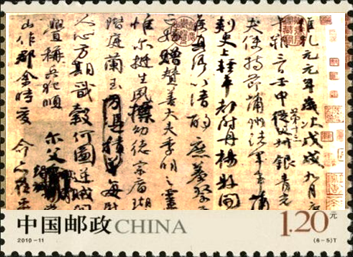 維乾元元年歲次戊戌九月庚
午朔三日壬申銀青光
夫使持節蒲州諸軍事蒲州
刺史上輕車都尉丹楊縣開
國侯真卿以清酌庶羞祭
亡姪贈贊善大夫季明靈
惟爾挺生夙標幼德宗廟瑚
階庭蘭玉每慰
人心方期戩穀何圖逆賊
釁稱兵犯順爾父
山作郡余時受命
中国邮政 CHINA
1.20元
2010-11
(6-5)T